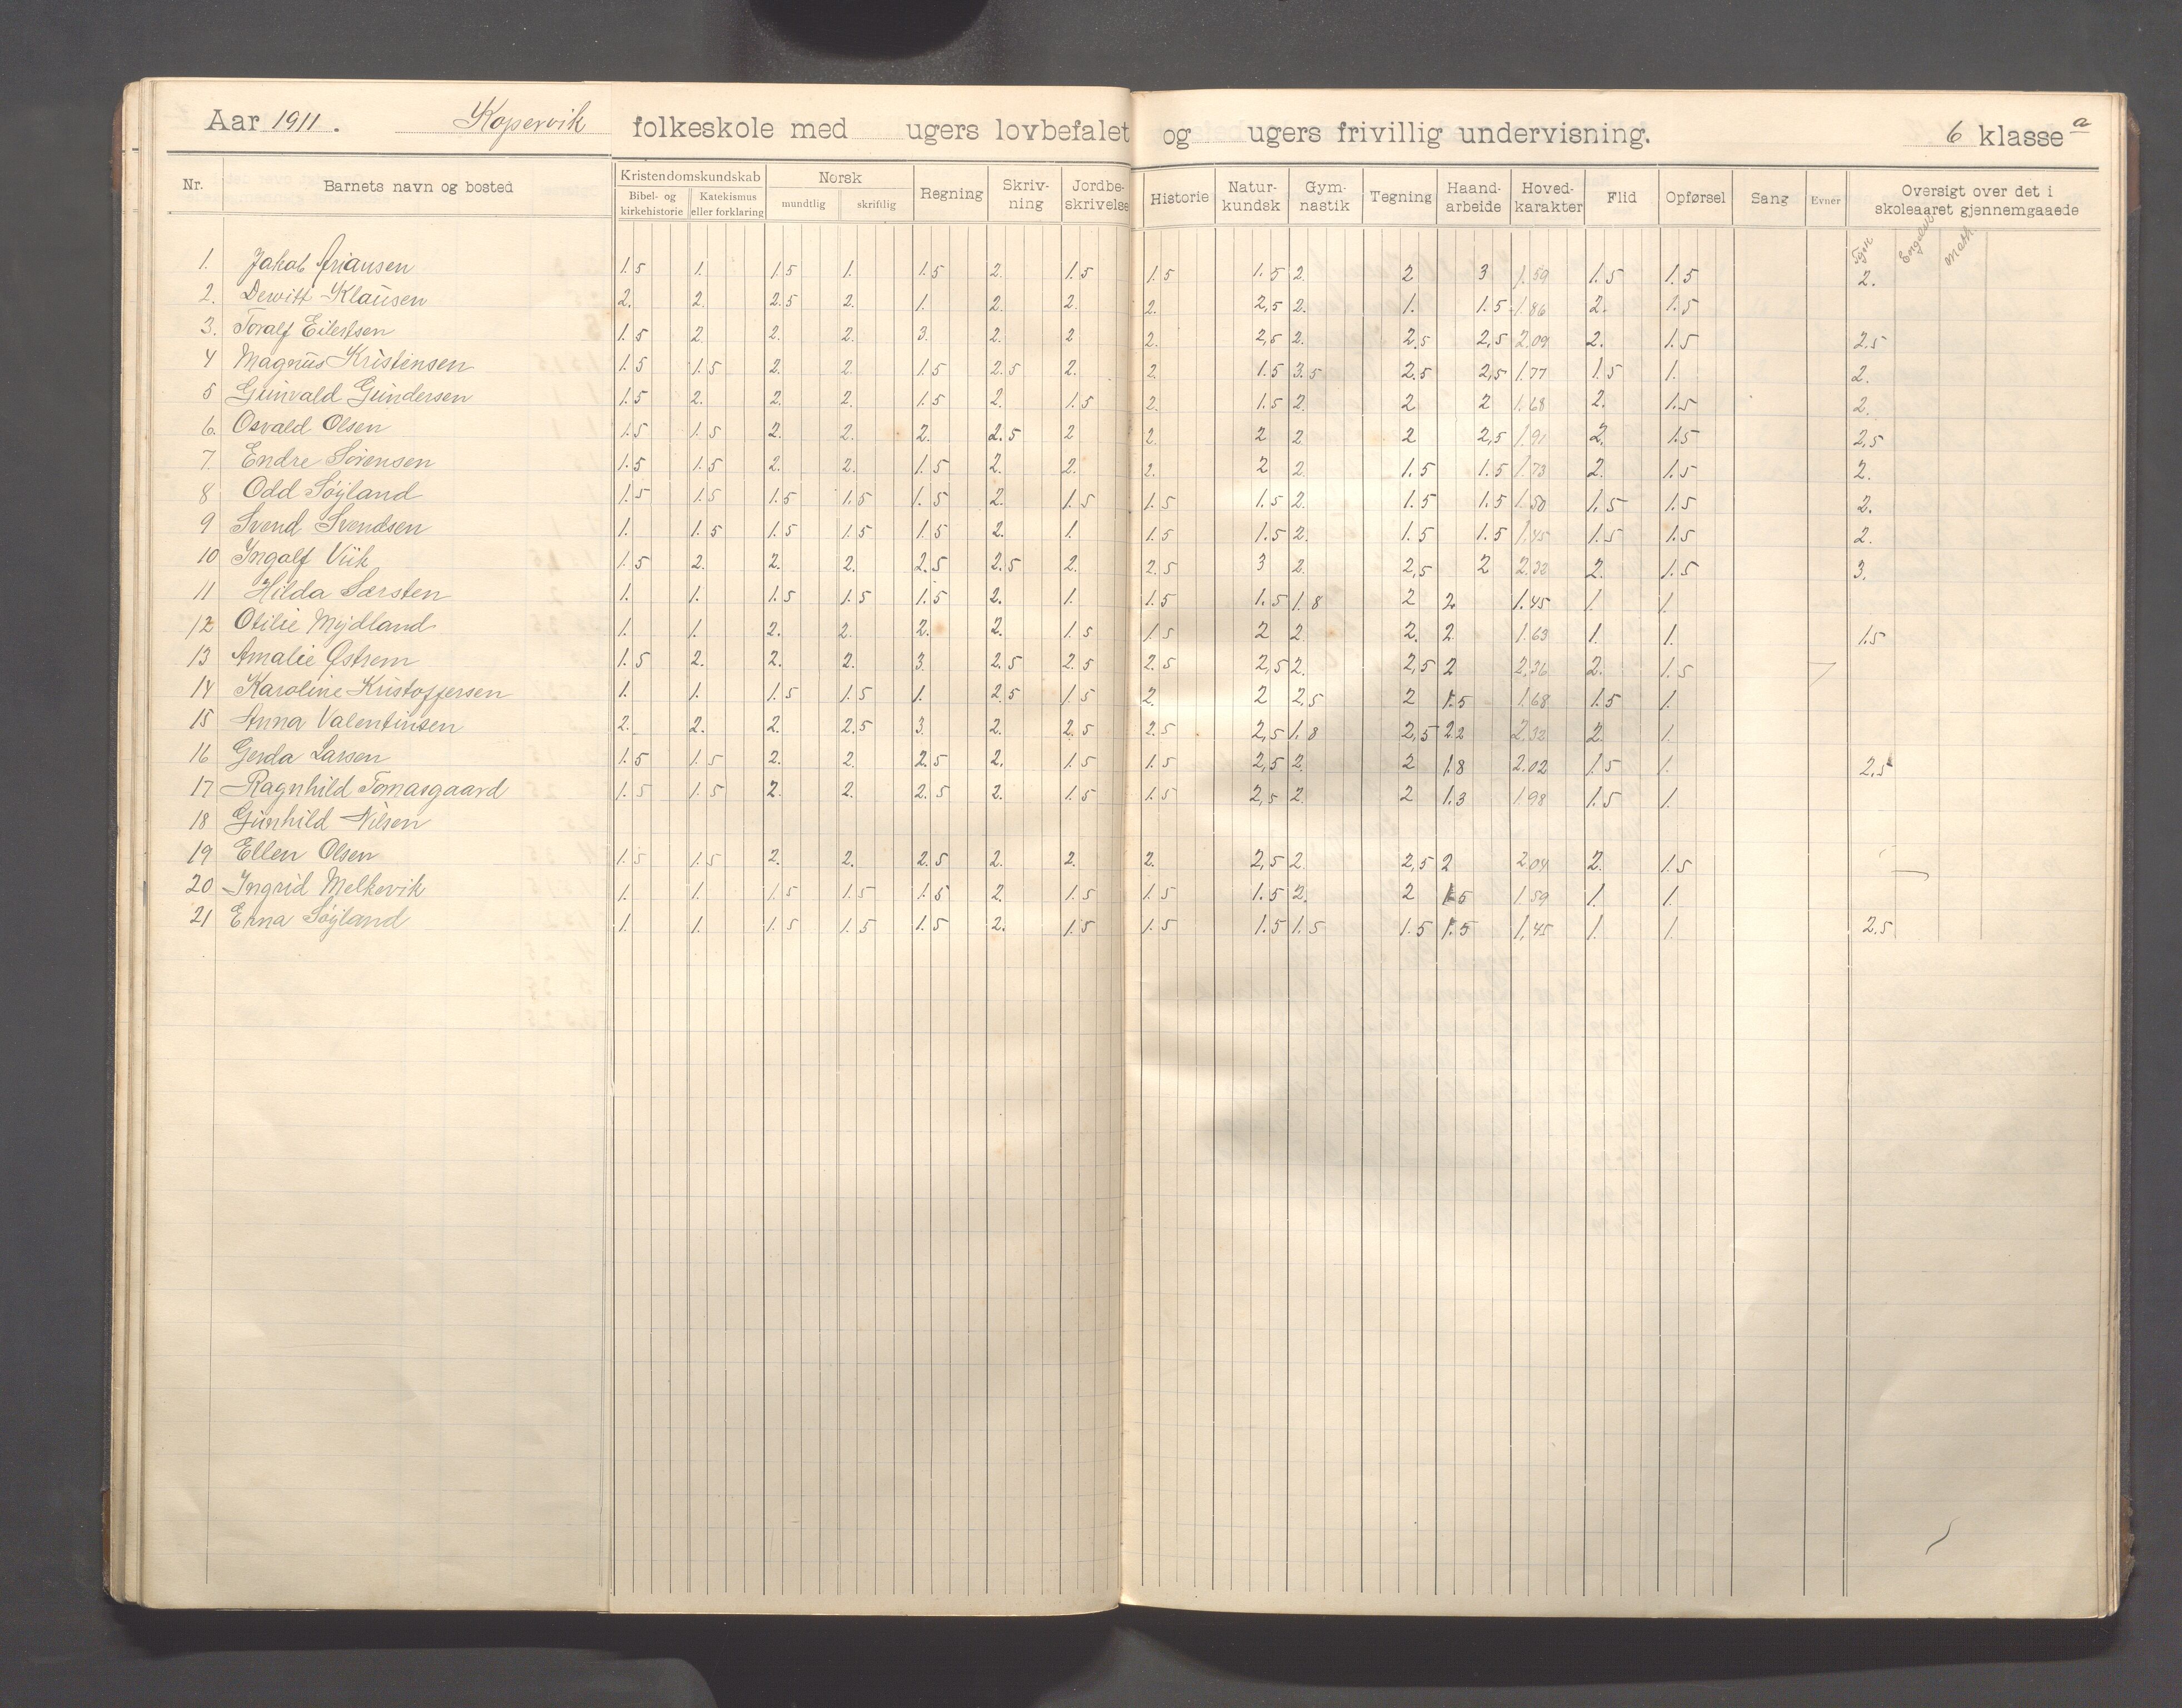 Aar 1911. Kopervik folkeskole med ugers lovbefalet og ugers frivillig undervisning. 6 klasse a
Nr. Barnets navn og bosted Kristendomskundskab Norsk Regning Skriv-ning Jordbe-skrivelse Historie Natur-kundsk Gym-nastik Tegning Haand-arbeide Hoved-karakter Flid Opførsel Sang Evner Oversigt over det i skoleaaret gjennemgaaede
Bibel- og kirkehistorie Katekismus eller forklaring mundtlig skriftlig
Tysk Engelsk Math.
1. Jakob Ariansen 1.5 1. 1.5 1. 1.5 2. 1.5 1.5 1.5 2. 2 3 1.59 1.5 1.5 2.
2. Dewitt Klausen 2. 2. 2.5 2. 1. 2. 2. 2. 2,5 2. 1. 1.5 1.86 2. 1.5
3. Toralf Eilertsen 1.5 2. 2. 2. 3. 2. 2 2. 2,5 2. 2,5 2,5 2.09 2. 1.5 2.5
4 Magnus Kristensen 1.5 1.5 2. 2. 1.5 2.5 2. 2. 1.5 3.5 2.5 2,5 1.77 1.5 1. 2.
5 Gunvald Gundersen 1.5 2. 2. 2. 1.5 2. 1.5 2. 1.5 2. 2 2 1.68 2. 1.5 2.
6. Osvald Olsen 1.5 1.5 2. 2. 2. 2.5 2 2. 2 2. 2 2,5 1.91 2. 1.5 2,5
7. Endre Sørensen 1.5 1.5 2. 2. 1.5 2. 2. 2. 2 2. 1.5 1.5 1.73 2. 1.5 2.
8 Odd Søyland 1.5 1.5 1.5 1.5 1.5 2. 1.5 1.5 1.5 2. 1.5 1.5 1.50 1.5 1.5 2.
9 Svend Svendsen 1. 1.5 1.5 1.5 1.5 2. 1. 1.5 1.5 2. 1.5 1.5 1.45 1.5 1.5 2.
10 Ingolf Viik 1.5 2. 2. 2. 2.5 2.5 2. 2.5 3 2. 2,5 2 2.32 2. 1.5 3.
11 Hilda Sørsten 1. 1. 1.5 1.5 1.5 2. 1. 1.5 1.5 1.8 2 2. 1.45 1. 1.
12 Otilie Mydland 1. 1. 2. 2. 2. 2. 1.5 1.5 2 2. 2. 2. 1.63 1. 1. 1.5
13 Amalie Østrem 1.5 2. 2. 2. 3. 2.5 2.5 2.5 2,5 2. 2,5 2 2,36 2. 1.5
14 Karoline Kristoffersen 1. 1. 1.5 1.5 1. 2.5 1.5 2. 2 2,5 2 1.5 1.68 1.5 1.
15 Anna Valentinsen 2. 2. 2. 2.5 3. 2. 2.5 2.5 2,5 1.8 2,5 2.2 2.32 2. 1.
16 Gerda Larsen 1.5 1.5 2. 2. 2.5 2. 1.5 1.5 2,5 2. 2 1.8 2.02 1.5 1. 2.5
17 Ragnhild Tomasgaard 1.5 1.5 2. 2. 2.5 2. 1.5 1.5 2,5 2. 2 1.3 1.98 1.5 1.
18 Gunhild Nilsen
19 Ellen Olsen 1.5 1.5 2. 2. 2.5 2. 2. 2. 2,5 2. 2,5 2 2.04 2. 1.5
20 Ingrid Melkevik 1. 1. 1.5 1.5 1.5 2. 1.5 1.5 1.5 2. 2 1.5 1.59 1. 1.
21 Erna Søyland 1. 1. 1.5 1.5 1.5 2. 1.5 1.5 1.5 1.5 1.5 1.5 1,45 1. 1. 2.5